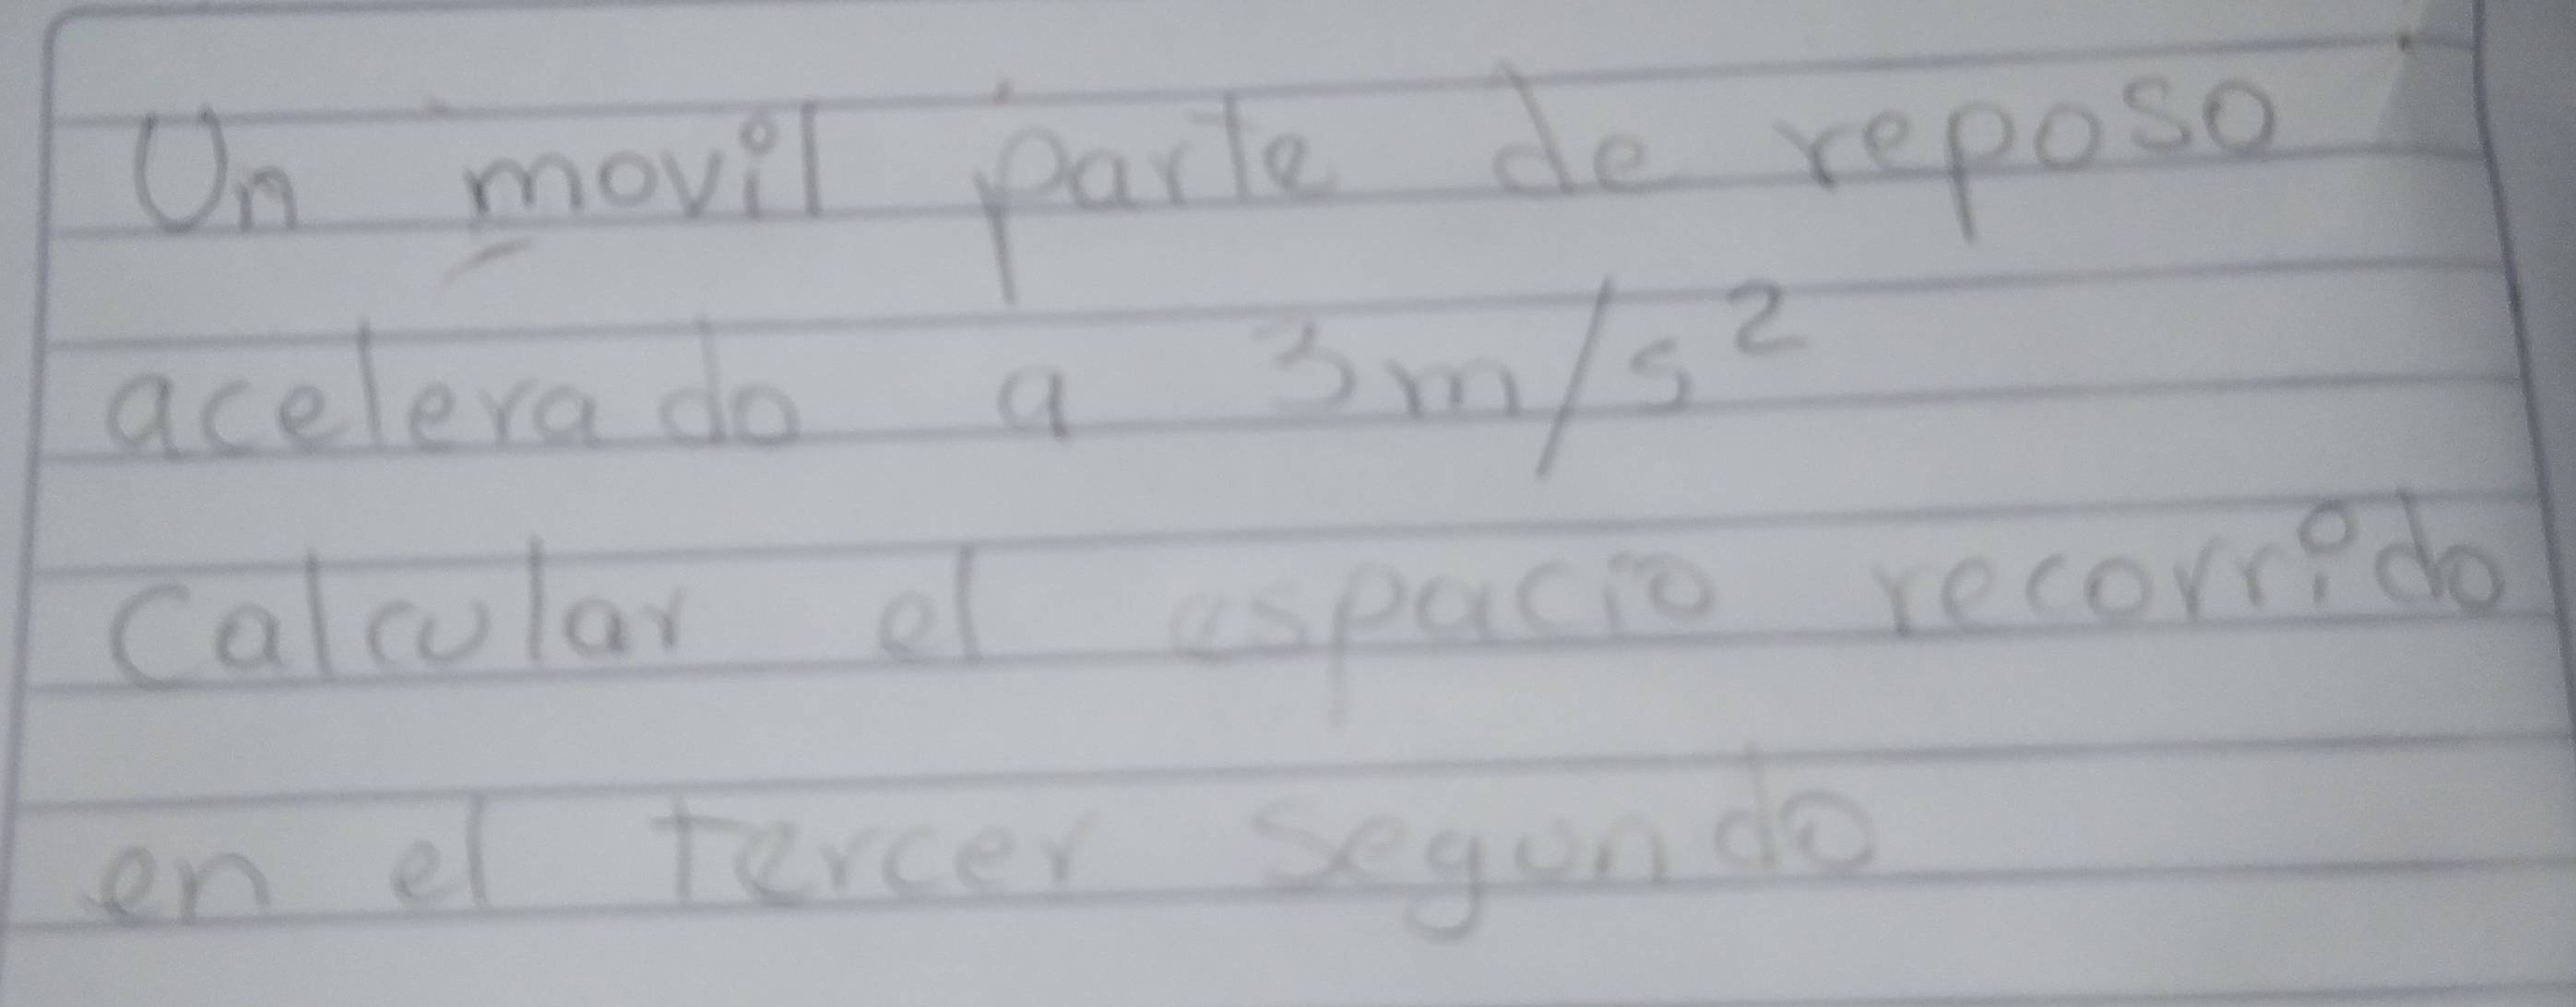 Un movil parte de reposo
acelerado a 3m/s²
Calcular el espacio recorrido
en el tercer segundo